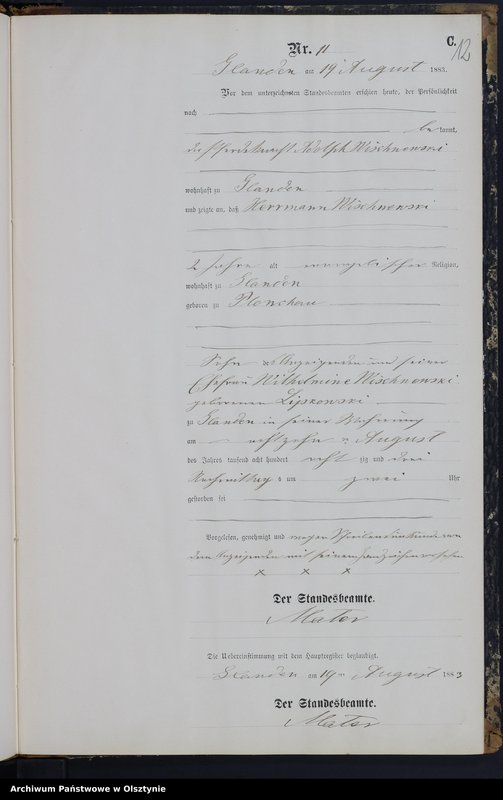 C.
12
Nr. 11
Glanden am 19ten August 1883.
Vor dem unterzeichneten Standesbeamten erschien heute, der Persönlichkeit
nach
bekannt,
der Pferdeknecht Adolph Wischnewski
wohnhaft zu Glanden
und zeigte an, daß Herrmann Wischnewski
2 Jahre alt evangelischer Religion,
wohnhaft zu Glanden
geboren zu Plonchau
Sohn des Anzeigenden und seiner
Ehefrau Wilhelmine Wischnowski
geborenen Lipkowski
zu Glanden in seiner Wohnung
am achtzehn ten August
des Jahres tausend acht hundert acht zig und drei
Nachmittags um zwei Uhr
gestorben sei
Vorgelesen, genehmigt und wegen Schreibensunkunde von
dem Anzeigenden mit seinem Handzeichen versehen
x x x
Der Standesbeamte.
Mater
Die Uebereinstimmung mit dem Hauptregister beglaubigt.
Glanden am 19ten August 1883
Der Standesbeamte.
Mater
Archiwum Państwowe w Olsztynie